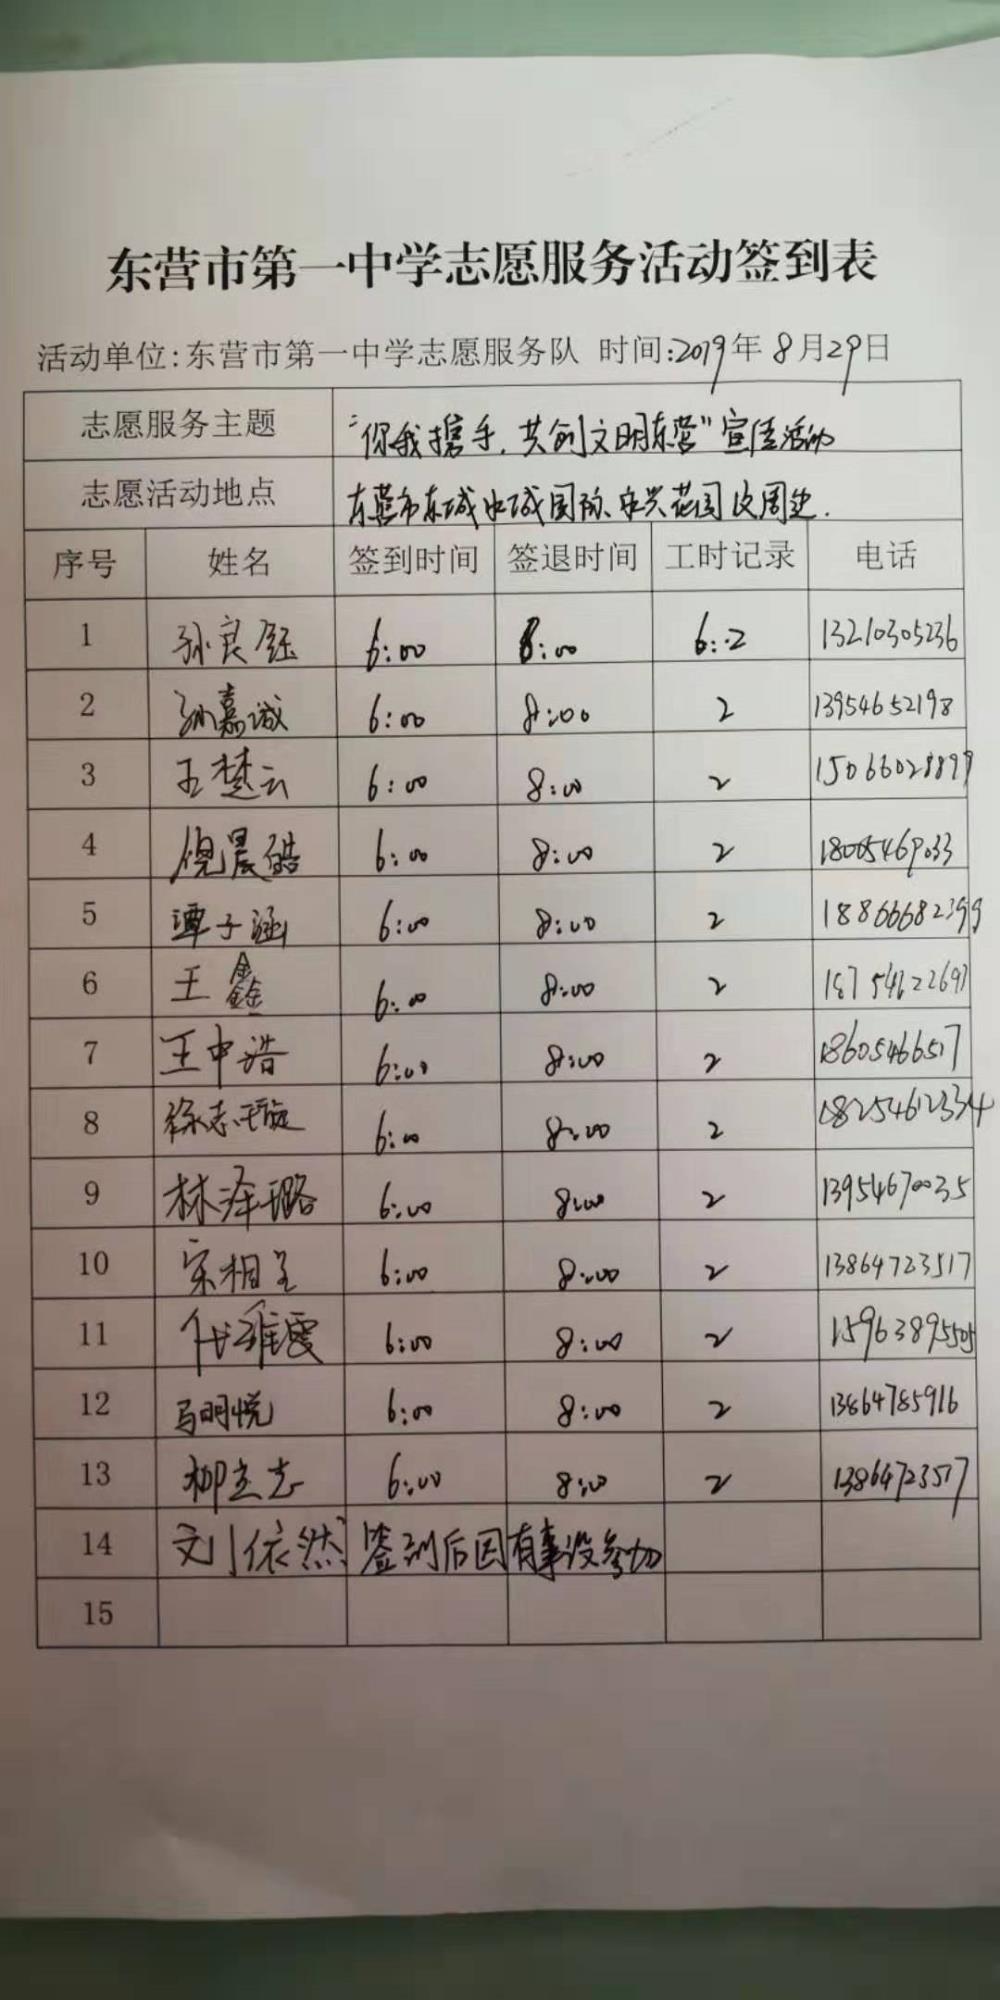 东营市第一中学志愿服务活动签到表
活动单位:东营市第一中学志愿服务队 时间:2019年8月29日
志愿服务主题 "你我携手,共创文明东营"宣传活动
志愿活动地点 东营市东城中城国际、安兴花园及周边.
序号 姓名 签到时间 签退时间 工时记录 电话
1 孙良钰 6:00 8:00 6:.2 13210305236
2 孙嘉诚 6:00 8:00 2 13954652198
3 王楚云 6:00 8:00 2 15066028899
4 倪晨皓 6:00 8:00 2 18005469033
5 谭子涵 6:00 8:00 2 18866682399
6 王鑫 6:00 8:00 2 18754622697
7 王中浩 6:00 8:00 2 18605466517
8 徐志璇 6:00 8:00 2 18254612334
9 林泽璐 6:00 8:00 2 13954670035
10 宋相 6:00 8:00 2 13864723517
11 代雅雯 6:00 8:00 2 15963895505
12 马明悦 6:00 8:00 2 13864785916
13 柳立志 6:00 8:00 2 13864723517
14 刘依然 签到后因有事没参加
15